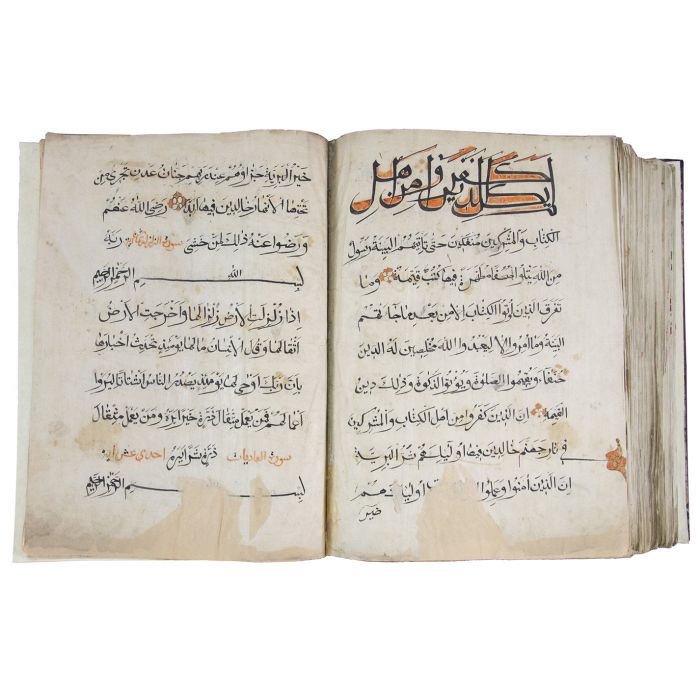 يكن الذين كفروا من اهل
الكتاب والمشركين منفكين حتى تاتيهم البينة رسول
من الله يتلوا صحفا مطهرة فيها كتب قيمة وما
تفرق الذين اوتوا الكتاب الا من بعد ما جاءتهم
البينة وما امروا الا ليعبدوا الله مخلصين له الدين
حنفاء ويقيموا الصلوة ويؤتوا الزكوة وذلك دين
القيمة ان الذين كفروا من اهل الكتاب والمشركين
في نار جهنم خالدين فيها اولئك هم شر البرية
ان الذين امنوا وعملوا الصالحات اولئك هم
خير
خير البرية جزاؤهم عند ربهم جنات عدن تجري من
تحتها الانهار خالدين فيها ابدا رضي الله عنهم
ورضوا عنه ذلك لمن خشي ربه سورة الزلزلة
بسم الله الرحمن الرحيم
اذا زلزلت الارض زلزالها واخرجت الارض
اثقالها وقال الانسان مالها يومئذ تحدث اخبارها
بان ربك اوحى لها يومئذ يصدر الناس اشتاتا ليروا
اعمالهم فمن يعمل مثقال ذرة خيرا يره ومن يعمل مثقال
ذرة شرا يره سورة العاديات احدى عشر اية
بسم الرحمن الرحيم